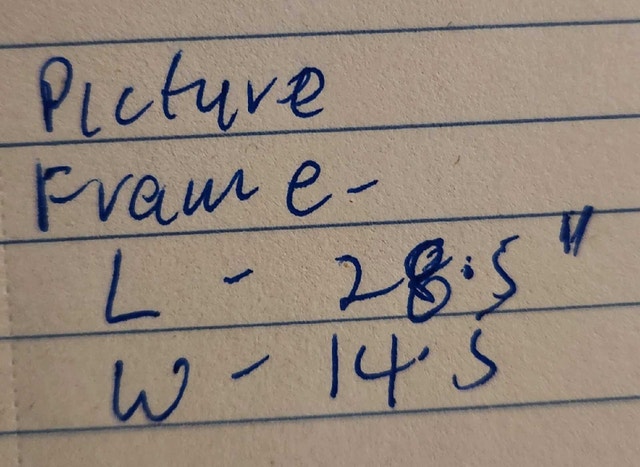 Picture
Frame -
L - 28.5"
W - 14.5